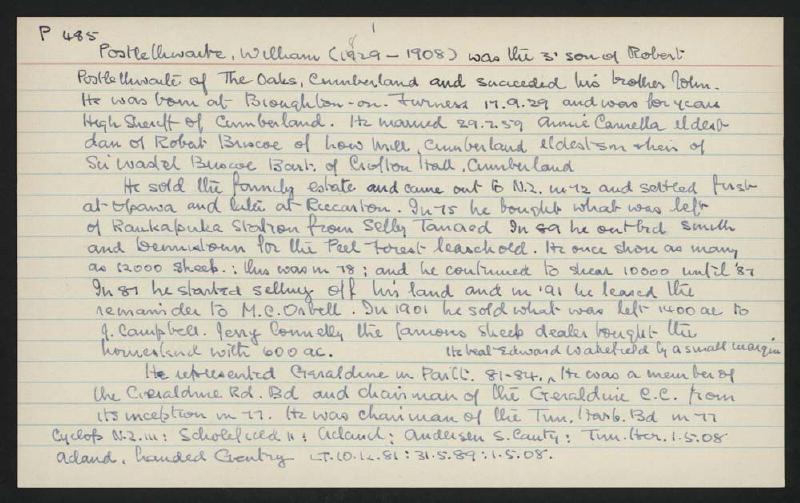 P 485
Postlethwaite, William (1829 – 1908) was the 3' son of Robert
Postlethwaite of The Oaks, Cumberland and succeeded his brother John.
He was born at Broughton-on-Furness 17.9.29 and was for years
High Sheriff of Cumberland. He married 29.7.59 Annie Camella eldest
dau of Robert Briscoe of Low Mill, Cumberland eldest son & heir of
Sir Wastel Briscoe Bart. of Crofton Hall, Cumberland
He sold the family estate and came out to N.Z. in 72 and settled first
at Opawa and later at Riccarton. In 75 he bought what was left
of Raukapuka Station from Selby Tancred In 89 he outbid Smith
and Dennistoun for the Peel Forest leasehold. He once shore as many
as 12000 sheep.: this was in 78; and he continued to shear 10000 until '87
In 87 he started selling off his land and in '91 he leased the
remainder to M.C. Orbell. In 1901 he sold what was left 1400 ac to
J. Campbell. Jerry Connelly the famous sheep dealer bought the
homestead with 600 ac. He beat Edward Wakefield by a small margin
He represented Geraldine in Parlt. 81-84.^ He was a member of
the Geraldine Rd. Bd and chairman of the Geraldine C.C. from
its inception in 77. He was chairman of the Tim. Harb. Bd in 77
Cyclop N.Z. iii: Scholefield ii; Acland; Andersen S. Canty; Tim. Her. 1.5.08
Acland, Landed Gentry LT. 10.12.81: 31.5.89: 1.5.08.